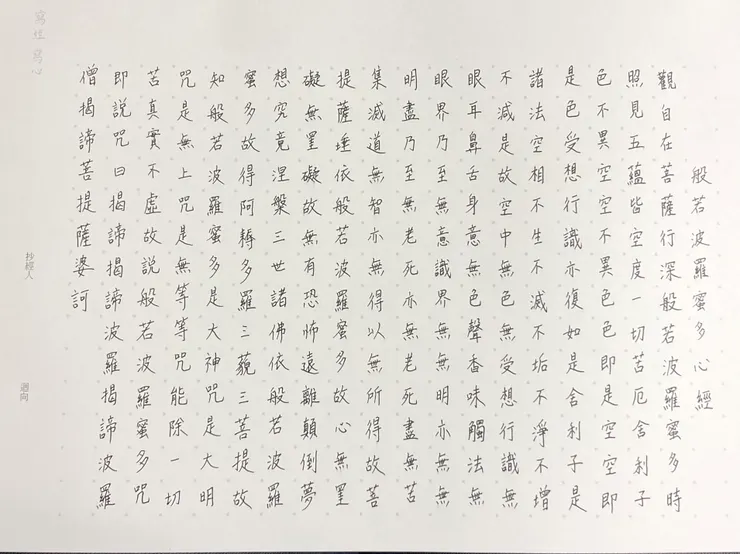 般若波羅蜜多心經
觀自在菩薩行深般若波羅蜜多時
照見五蘊皆空度一切苦厄舍利子
色不異空空不異色色即是空空即
是色受想行識亦復如是舍利子是
諸法空相不生不滅不垢不淨不增
不減是故空中無色無受想行識無
眼耳鼻舌身意無色聲香味觸法無
眼界乃至無意識界無無明亦無無
明盡乃至無老死亦無老死盡無苦
集滅道無智亦無得以無所得故菩
提薩埵依般若波羅蜜多故心無罣
礙無罣礙故無有恐怖遠離顛倒夢
想究竟涅槃三世諸佛依般若波羅
蜜多故得阿耨多羅三藐三菩提故
知般若波羅蜜多是大神咒是大明
咒是無上咒是無等等咒能除一切
苦真實不虛故說般若波羅蜜多咒
即說咒曰揭諦揭諦波羅揭諦波羅
僧揭諦菩提薩婆訶
抄經人
迴向
寫經 寫心